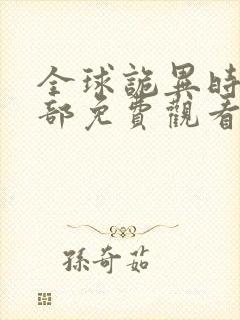 全球詭異時
部免費觀看
孫奇茹